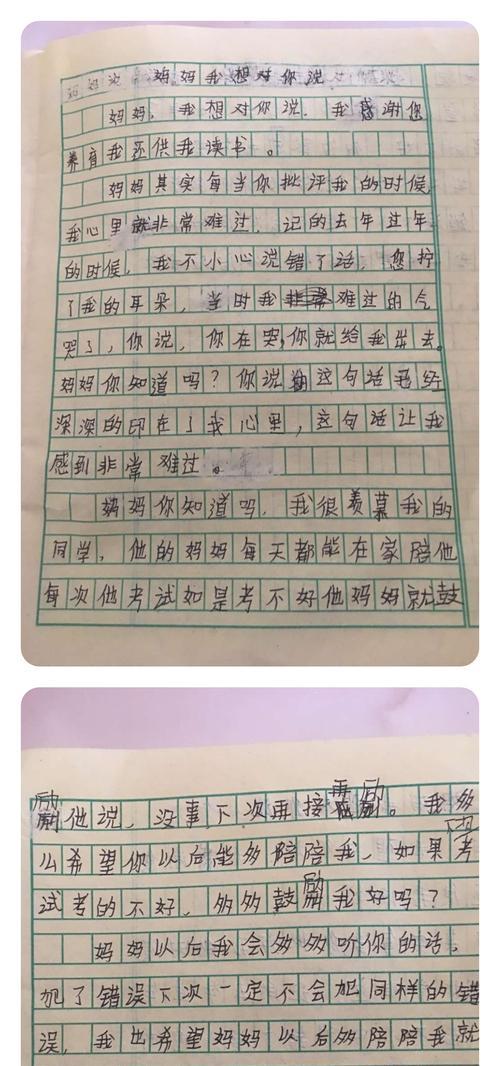 妈妈我想对你说
妈妈，我想对你说，我感谢您
养育我还供我读书。
妈妈其实每当你批评我的时候，
我心里就非常难过，记的去年过年
的时候，我不小心说错了话，您拧
了我的耳朵，当时我难过的气
哭了，你说，你在哭，你就给我出去。
妈妈你知道吗？你说的这句话已经
深深的印在了我心里，这句话让我
感到非常难过。
妈妈你知道吗，我很羡慕我的
同学，他的妈妈每天都能在家陪他
每次他考试如是考不好他妈妈就鼓
励他说，没事下次再接再励。我多
么希望你以后能多陪陪我，如果考
试考的不好，多多鼓励我好吗？
妈妈以后我会多多听你的话，
犯了错误下次一定不会犯同样的错
误，我也希望妈妈以后多陪陪我就